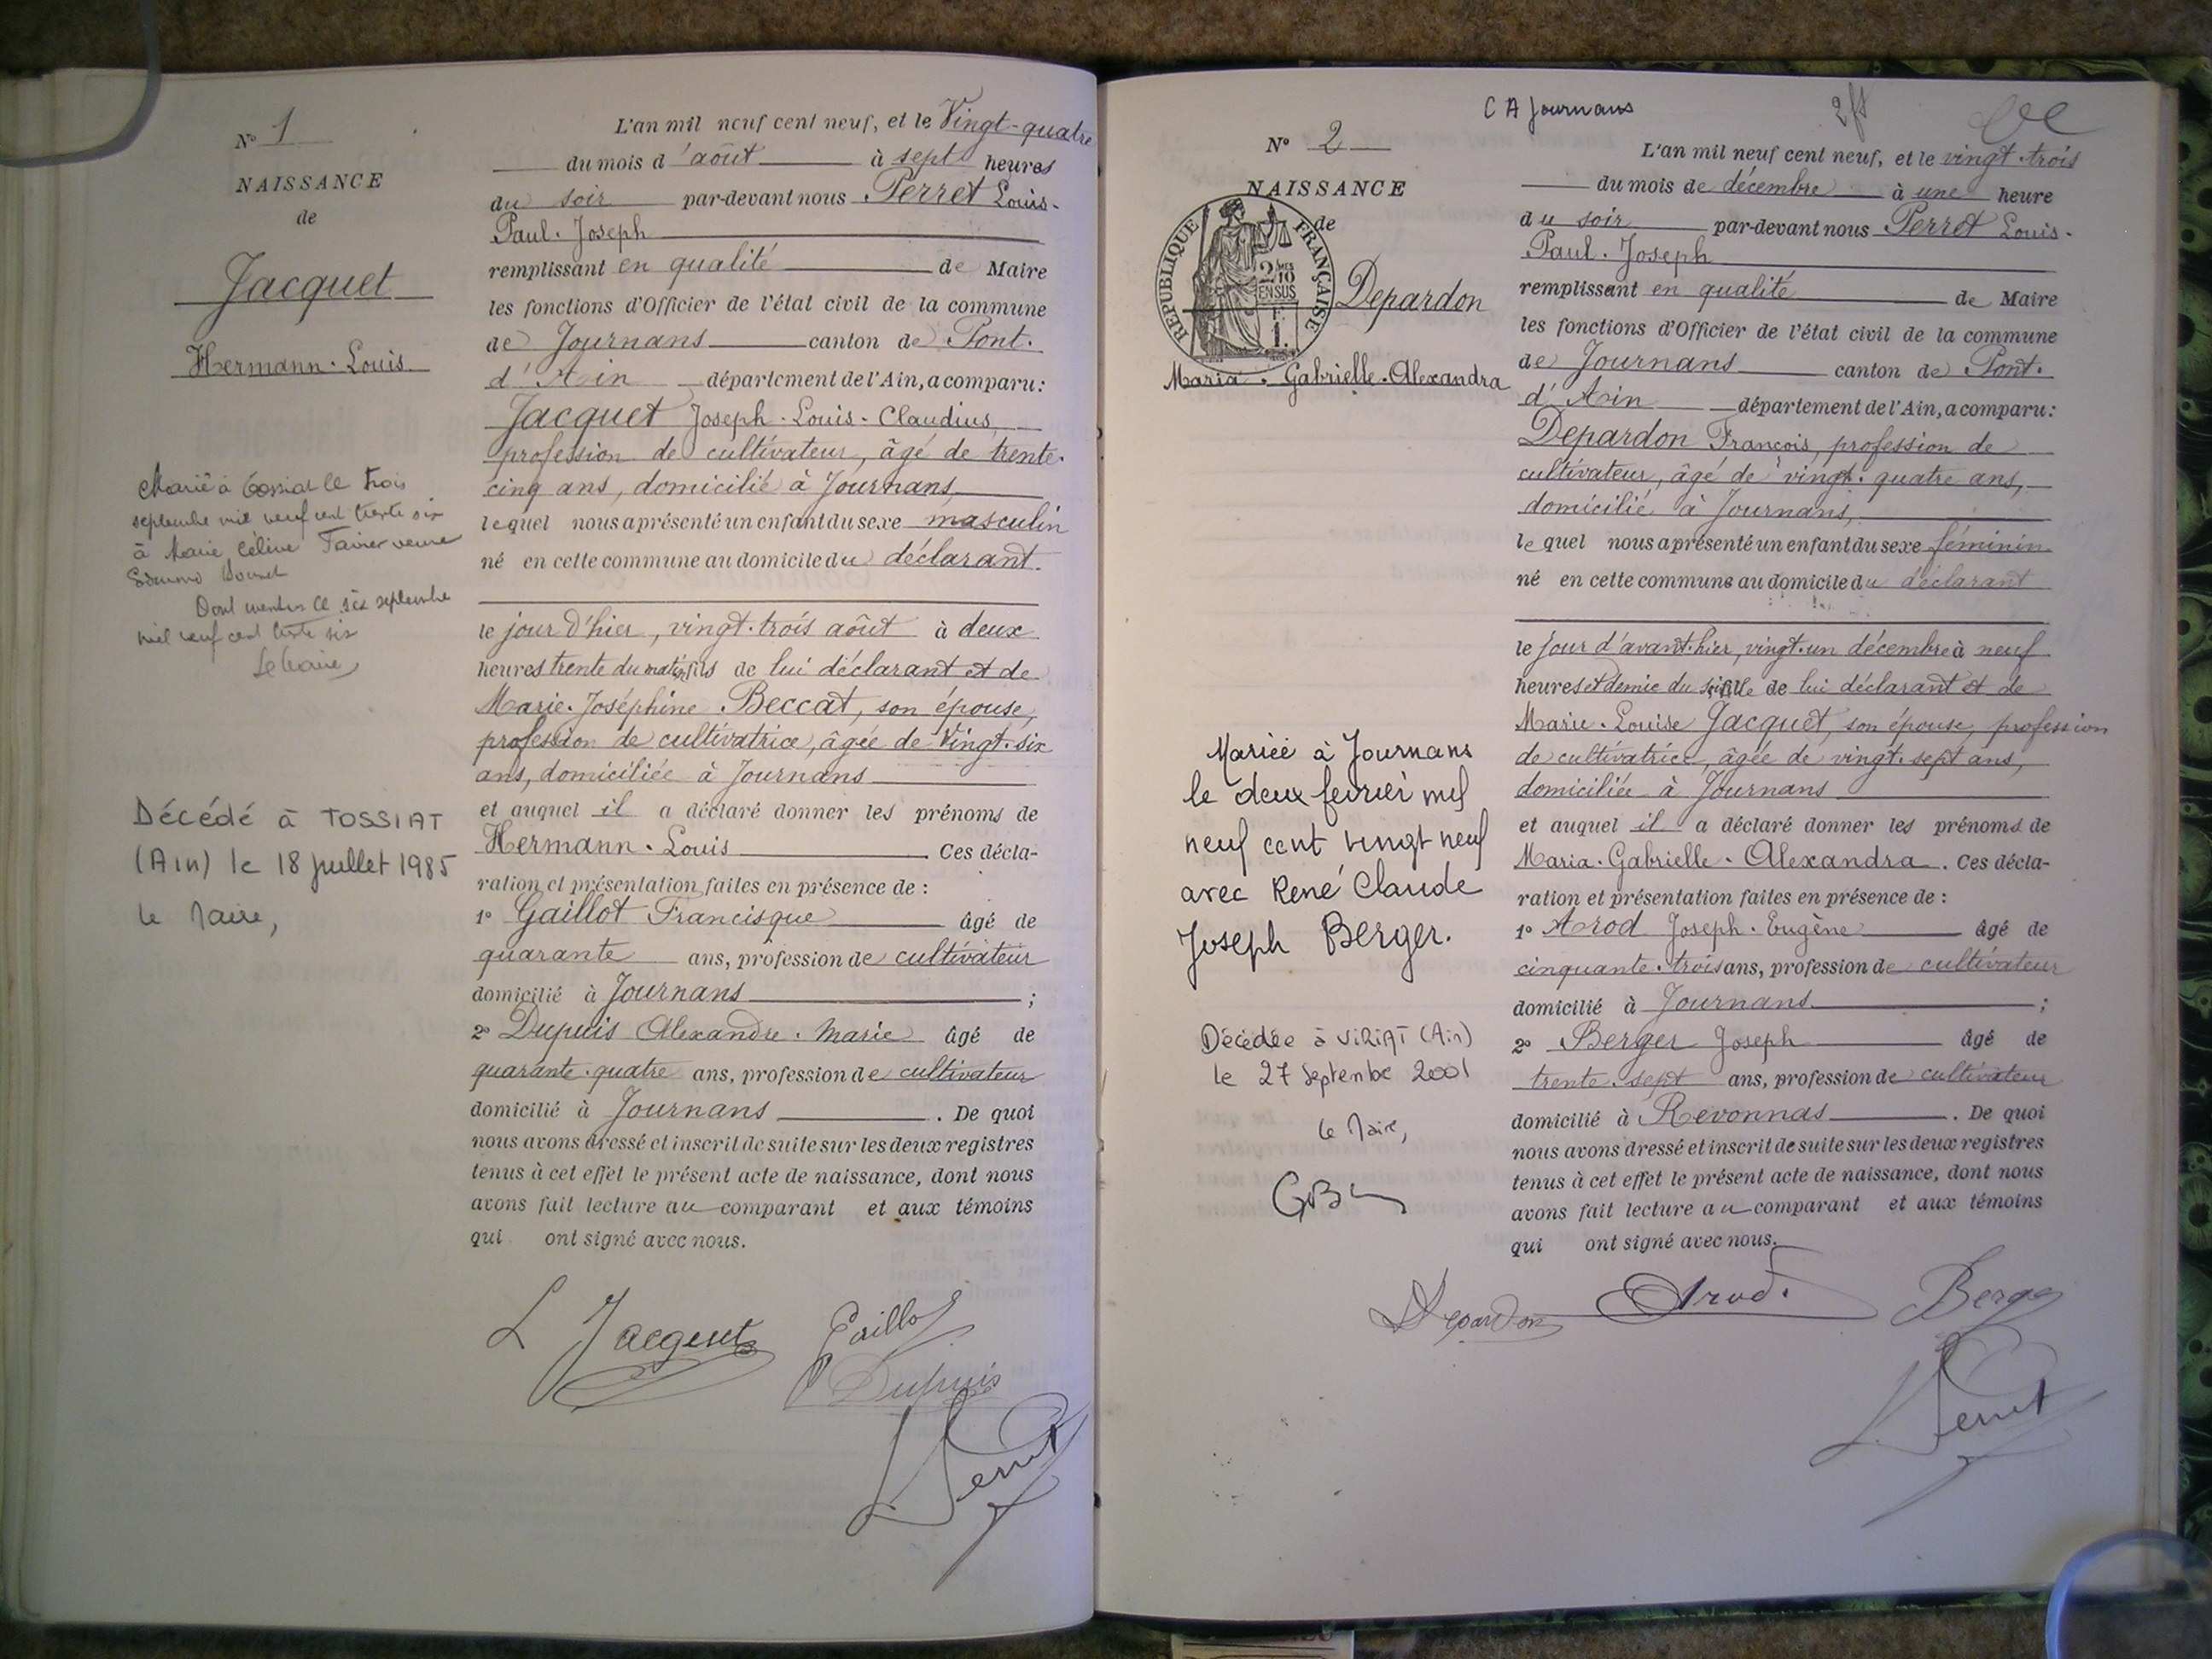 N° 1
NAISSANCE
de
Jacquet
Hermann-Louis
Marié à Tossiat le trois
septembre mil neuf cent trente six
à Marie Céline Favier veuve
le six septembre
mil neuf cent trente six
Le Maire
Décédé à TOSSIAT
(Ain) le 18 juillet 1985
le Maire,
L'an mil neuf cent neuf, et le Vingt-quatre
du mois d'août à sept heures
du soir par-devant nous Perret Louis-
Paul-Joseph
remplissant en qualité de Maire
les fonctions d'Officier de l'état civil de la commune
de Journans canton de Pont-
d'Ain département de l'Ain, a comparu:
Jacquet Joseph-Louis-Claudius,
profession de cultivateur, âgé de trente-
cinq ans, domicilié à Journans,
lequel nous a présenté un enfant du sexe masculin
né en cette commune au domicile du déclarant.
le jour d'hier, vingt-trois août à deux
heures trente du matin, fils de lui déclarant et de
Marie-Joséphine Beccat, son épouse,
profession de cultivatrice, âgée de Vingt-six
ans, domiciliée à Journans
et auquel il a déclaré donner les prénoms de
Hermann-Louis. Ces décla-
ration et présentation faites en présence de :
1° Gaillot Francisque âgé de
quarante ans, profession de cultivateur
domicilié à Journans ;
2° Dupuis Alexandre-Marie âgé de
quarante-quatre ans, profession de cultivateur
domicilié à Journans. De quoi
nous avons dressé et inscrit de suite sur les deux registres
tenus à cet effet le présent acte de naissance, dont nous
avons fait lecture au comparant et aux témoins
qui ont signé avec nous.
L Jacquet Gaillot
Dupuis
L Perret
C A Journans
N° 2
NAISSANCE
de
RÉPUBLIQUE FRANÇAISE
2/10 EN SUS
1 F.
Depardon
Maria-Gabrielle-Alexandra
Mariée à Journans
le deux février mil
neuf cent vingt neuf
avec René Claude
Joseph Berger.
Décédée à VIRIAT (Ain)
le 27 Septembre 2001
Le Maire,
L'an mil neuf cent neuf, et le vingt-trois
du mois de décembre à une heure
du soir par-devant nous Perret Louis-
Paul-Joseph
remplissant en qualité de Maire
les fonctions d'Officier de l'état civil de la commune
de Journans canton de Pont-
d'Ain département de l'Ain, a comparu:
Depardon François, profession de
cultivateur, âgé de vingt-quatre ans,
domicilié à Journans,
lequel nous a présenté un enfant du sexe féminin
né en cette commune au domicile du déclarant
le jour d'avant-hier, vingt-un décembre à neuf
heures et demie du soir, fille de lui déclarant et de
Marie-Louise Jacquet, son épouse, profession
de cultivatrice, âgée de vingt-sept ans,
domiciliée à Journans
et auquel il a déclaré donner les prénoms de
Maria-Gabrielle-Alexandra. Ces décla-
ration et présentation faites en présence de :
1° Arod Joseph-Eugène âgé de
cinquante-trois ans, profession de cultivateur
domicilié à Journans ;
2° Berger Joseph âgé de
trente-sept ans, profession de cultivateur
domicilié à Revonnas. De quoi
nous avons dressé et inscrit de suite sur les deux registres
tenus à cet effet le présent acte de naissance, dont nous
avons fait lecture au comparant et aux témoins
qui ont signé avec nous.
Depardon Arod Berger
L Perret